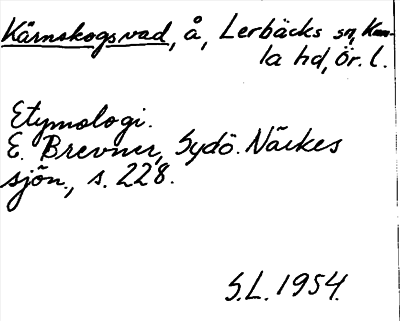 Kärnskogsvad, å, Lerbäcks sn, Kum-
la hd, Ör. l.
Etymologi.
E. Brevner, Sydö. Närkes
sjön., s. 228.
S.L. 1954.